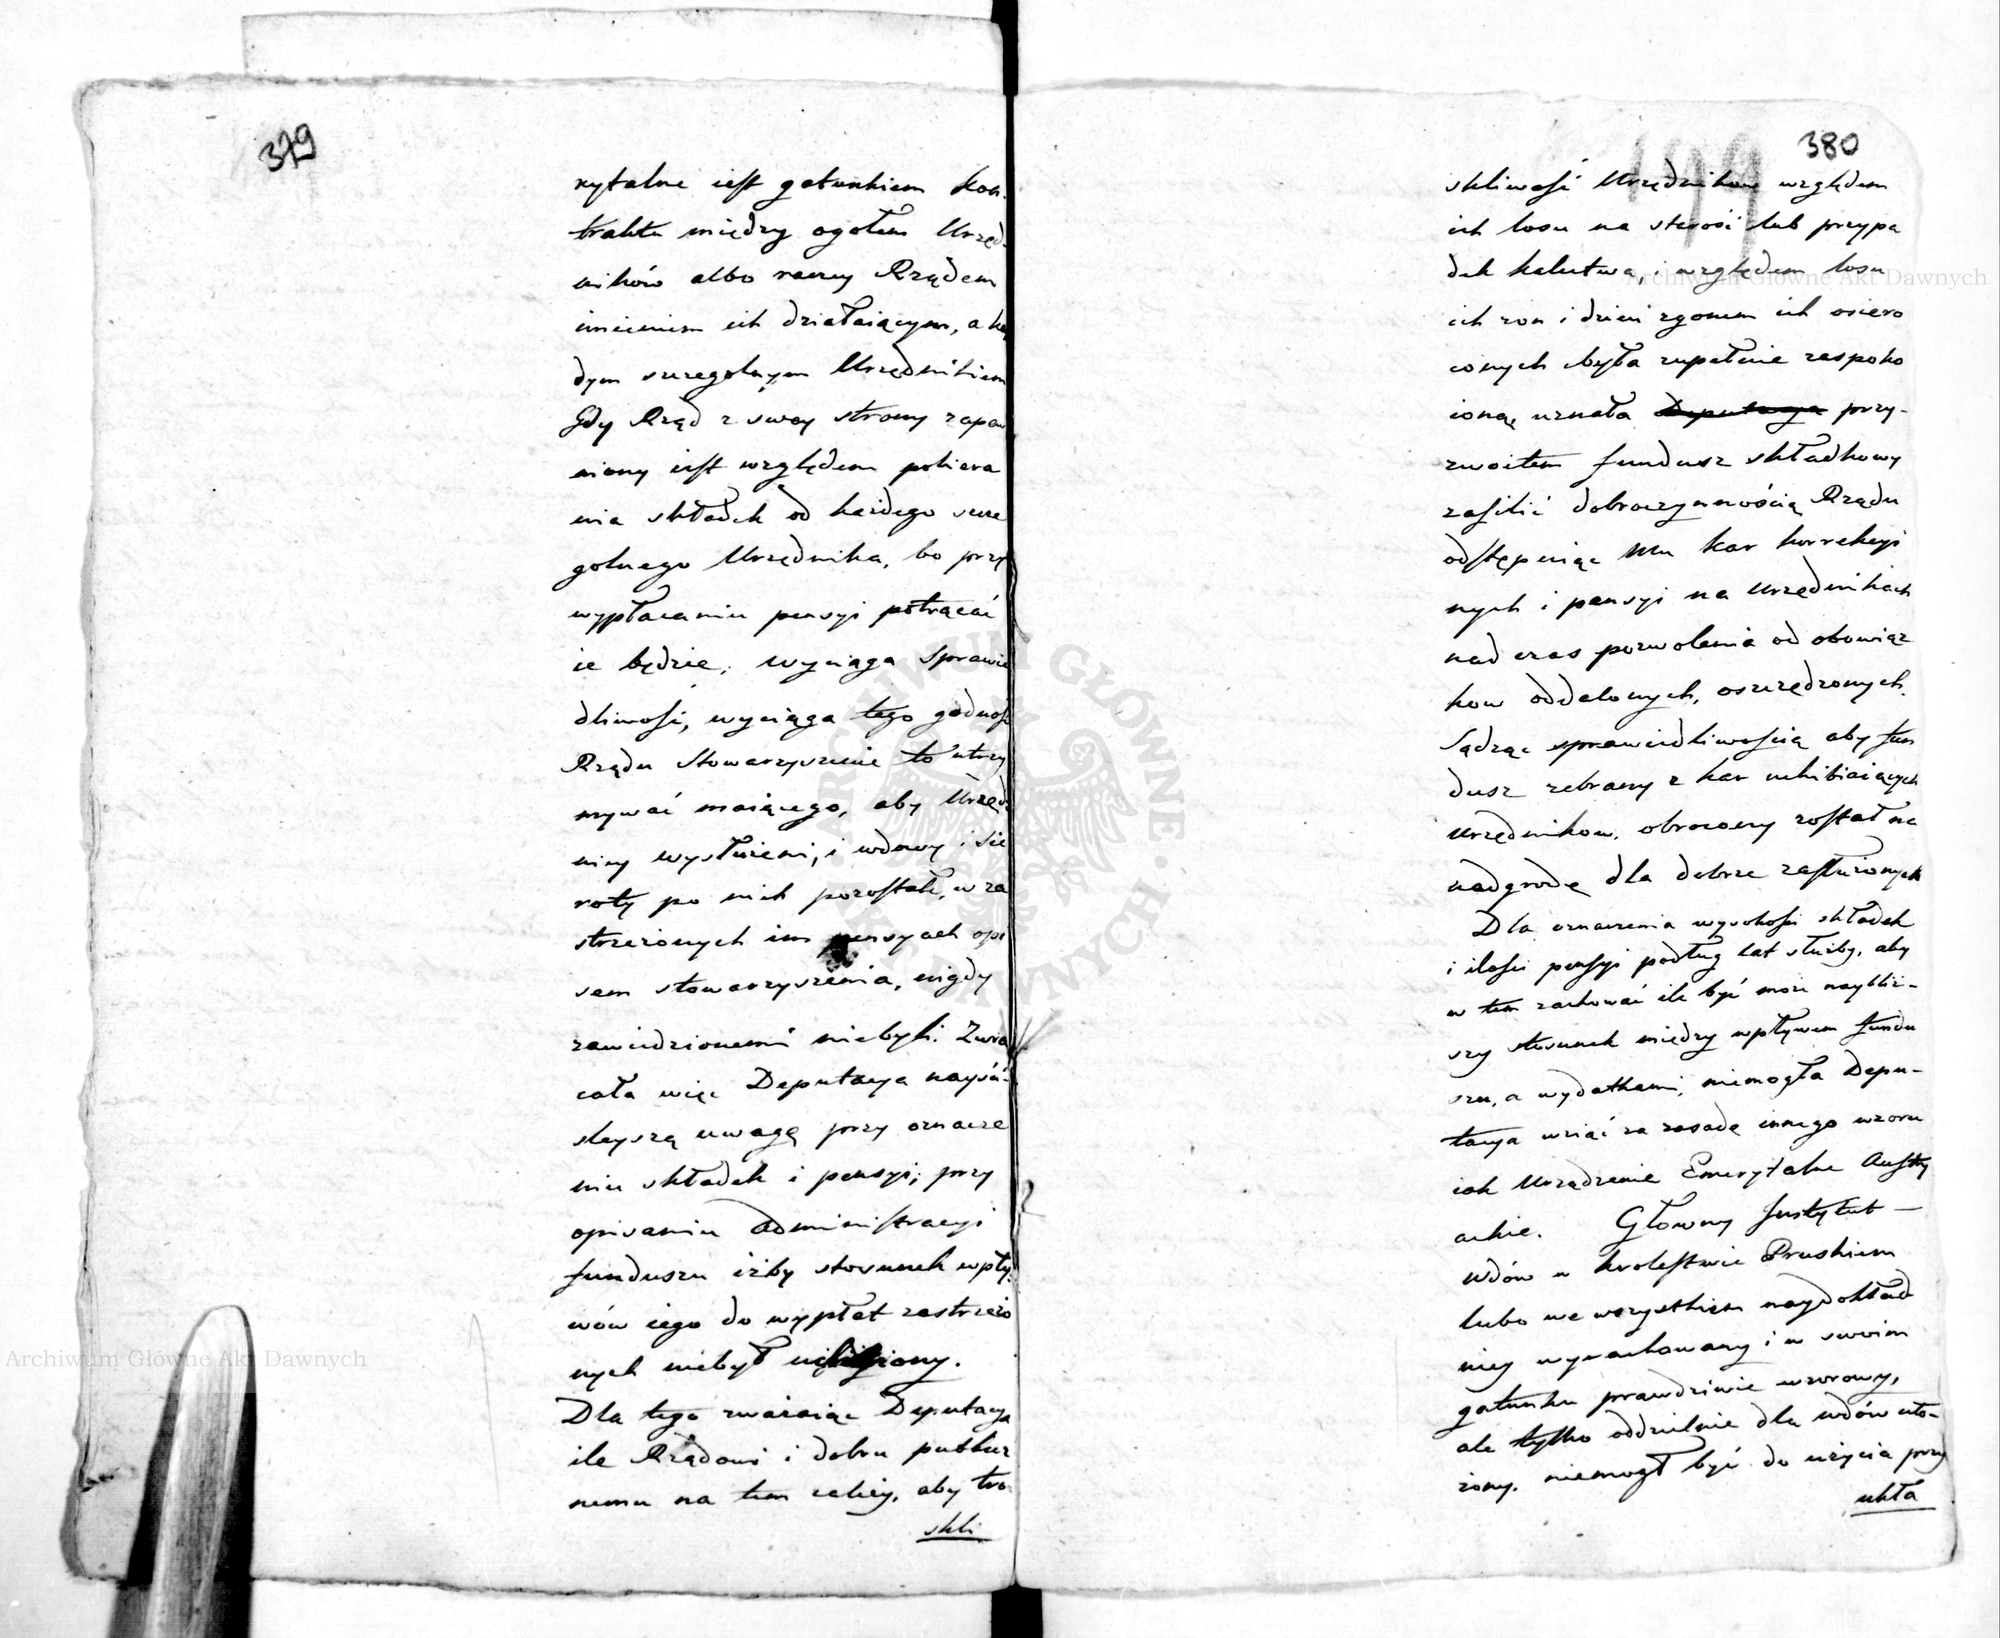 379
rytalne iest gatunkiem kon-
traktu między ogołem Urzęd-
ników albo raczey Rządem
imieniem ich działaiącym, a każ
dym szczegolnym Urzędnikiem
Gdy Rząd z swey strony zapew
niony iest względem pobiera
nia składek od każdego szcze
golnego Urzędnika, bo przy
wypłacaniu pensyi potrącać
ie będzie; wyciąga sprawie
dliwość, wyciąga tego godność
Rządu stowarzyszenie to utrzy
mywać maiącego, aby Urzęd
nicy wysłużeni, i wdowy i sie
roty po nich pozostałe, w za
strzeżonych im pensyach opi
sem stowarzyszenia, nigdy
zawiedzionemi niebyli. Zwra
cała więc Deputacya nayści-
śleyszą uwagę przy oznacze
niu składek i pensyi; przy
opisaniu administracyi
funduszu iżby stosunek wpły-
wów iego do wypłat zastrzeżo
nych niebył
Dla tego zważaiąc Deputacya
ile Rządowi i dobru publicz
nemu na tem zależy, aby tro-
skli
380
199
skliwość Urzędnikow względem
ich losu na starość lub przypa
dek kalectwa, i względem losu
ich żon i dzieci zgonem ich osiero
conych była zupełnie zaspoko
ioną uznała Deputacya przy-
zwoitem fundusz składkowy
zasilić dobroczynnością Rządu
odstępuiąc Mu kar korrekcyi
nych i pensyi na Urzędnikach
nad czas pozwolenia od obowiąz
kow oddalonych, oszczędzonych.
Sądząc sprawiedliwością aby fun
dusz zebrany z kar uchibiaiących
urzędnikow, obrocony został na
nadgrodę dla dobrze zasłużonych
Dla oznaczenia wysokości składek
i ilości pensyi podług lat służby, aby
w tem zachować ile być może naybliż-
szy stosunek między wpływem fundu
szu, a wydatkami, niemogła Depu-
tacya wziąć za zasadę innego wzoru
iak Urządzenie Emerytalne Austry
ackie. Głowny Instytut —
Wdów w krolestwie Pruskiem
lubo we wszystkiem naydokład
niey wyrachowany i w swoim
gatunku prawdziwie wzorowy,
ale tylko oddzielnie dla wdów uło-
żony, niemogł być do użycia przy
ukła
Archiwum Główne Akt Dawnych
Archiwum Główne Akt Dawnych
ARCHIWUM GŁÓWNE AKT DAWNYCH